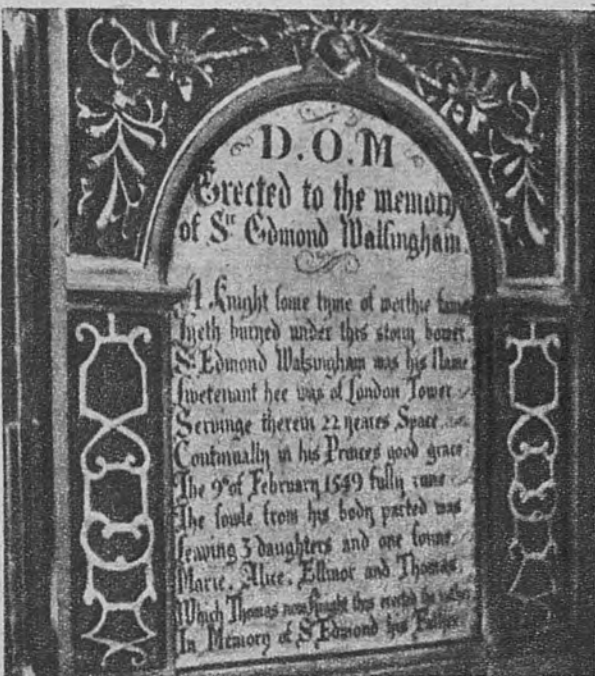 D.O.M
Erected to the memory
of Sr Edmond Walsingham.
A Knight some tyme of worthie fame
lyeth buried under this stony bower
Sr Edmond Walsingham was his Name
Livetenant hee was of London Tower
Servinge therein 22 yeares Space
Continually in his Princes good grace
The 9th of February 1549 fully
The sowle from his body parted was
Leaving 3 daughters and one sonne
Marie, Alice, Ellinor and Thomas.
Which Thomas now Knight this erected
In Memory of Sr Edmond his Father